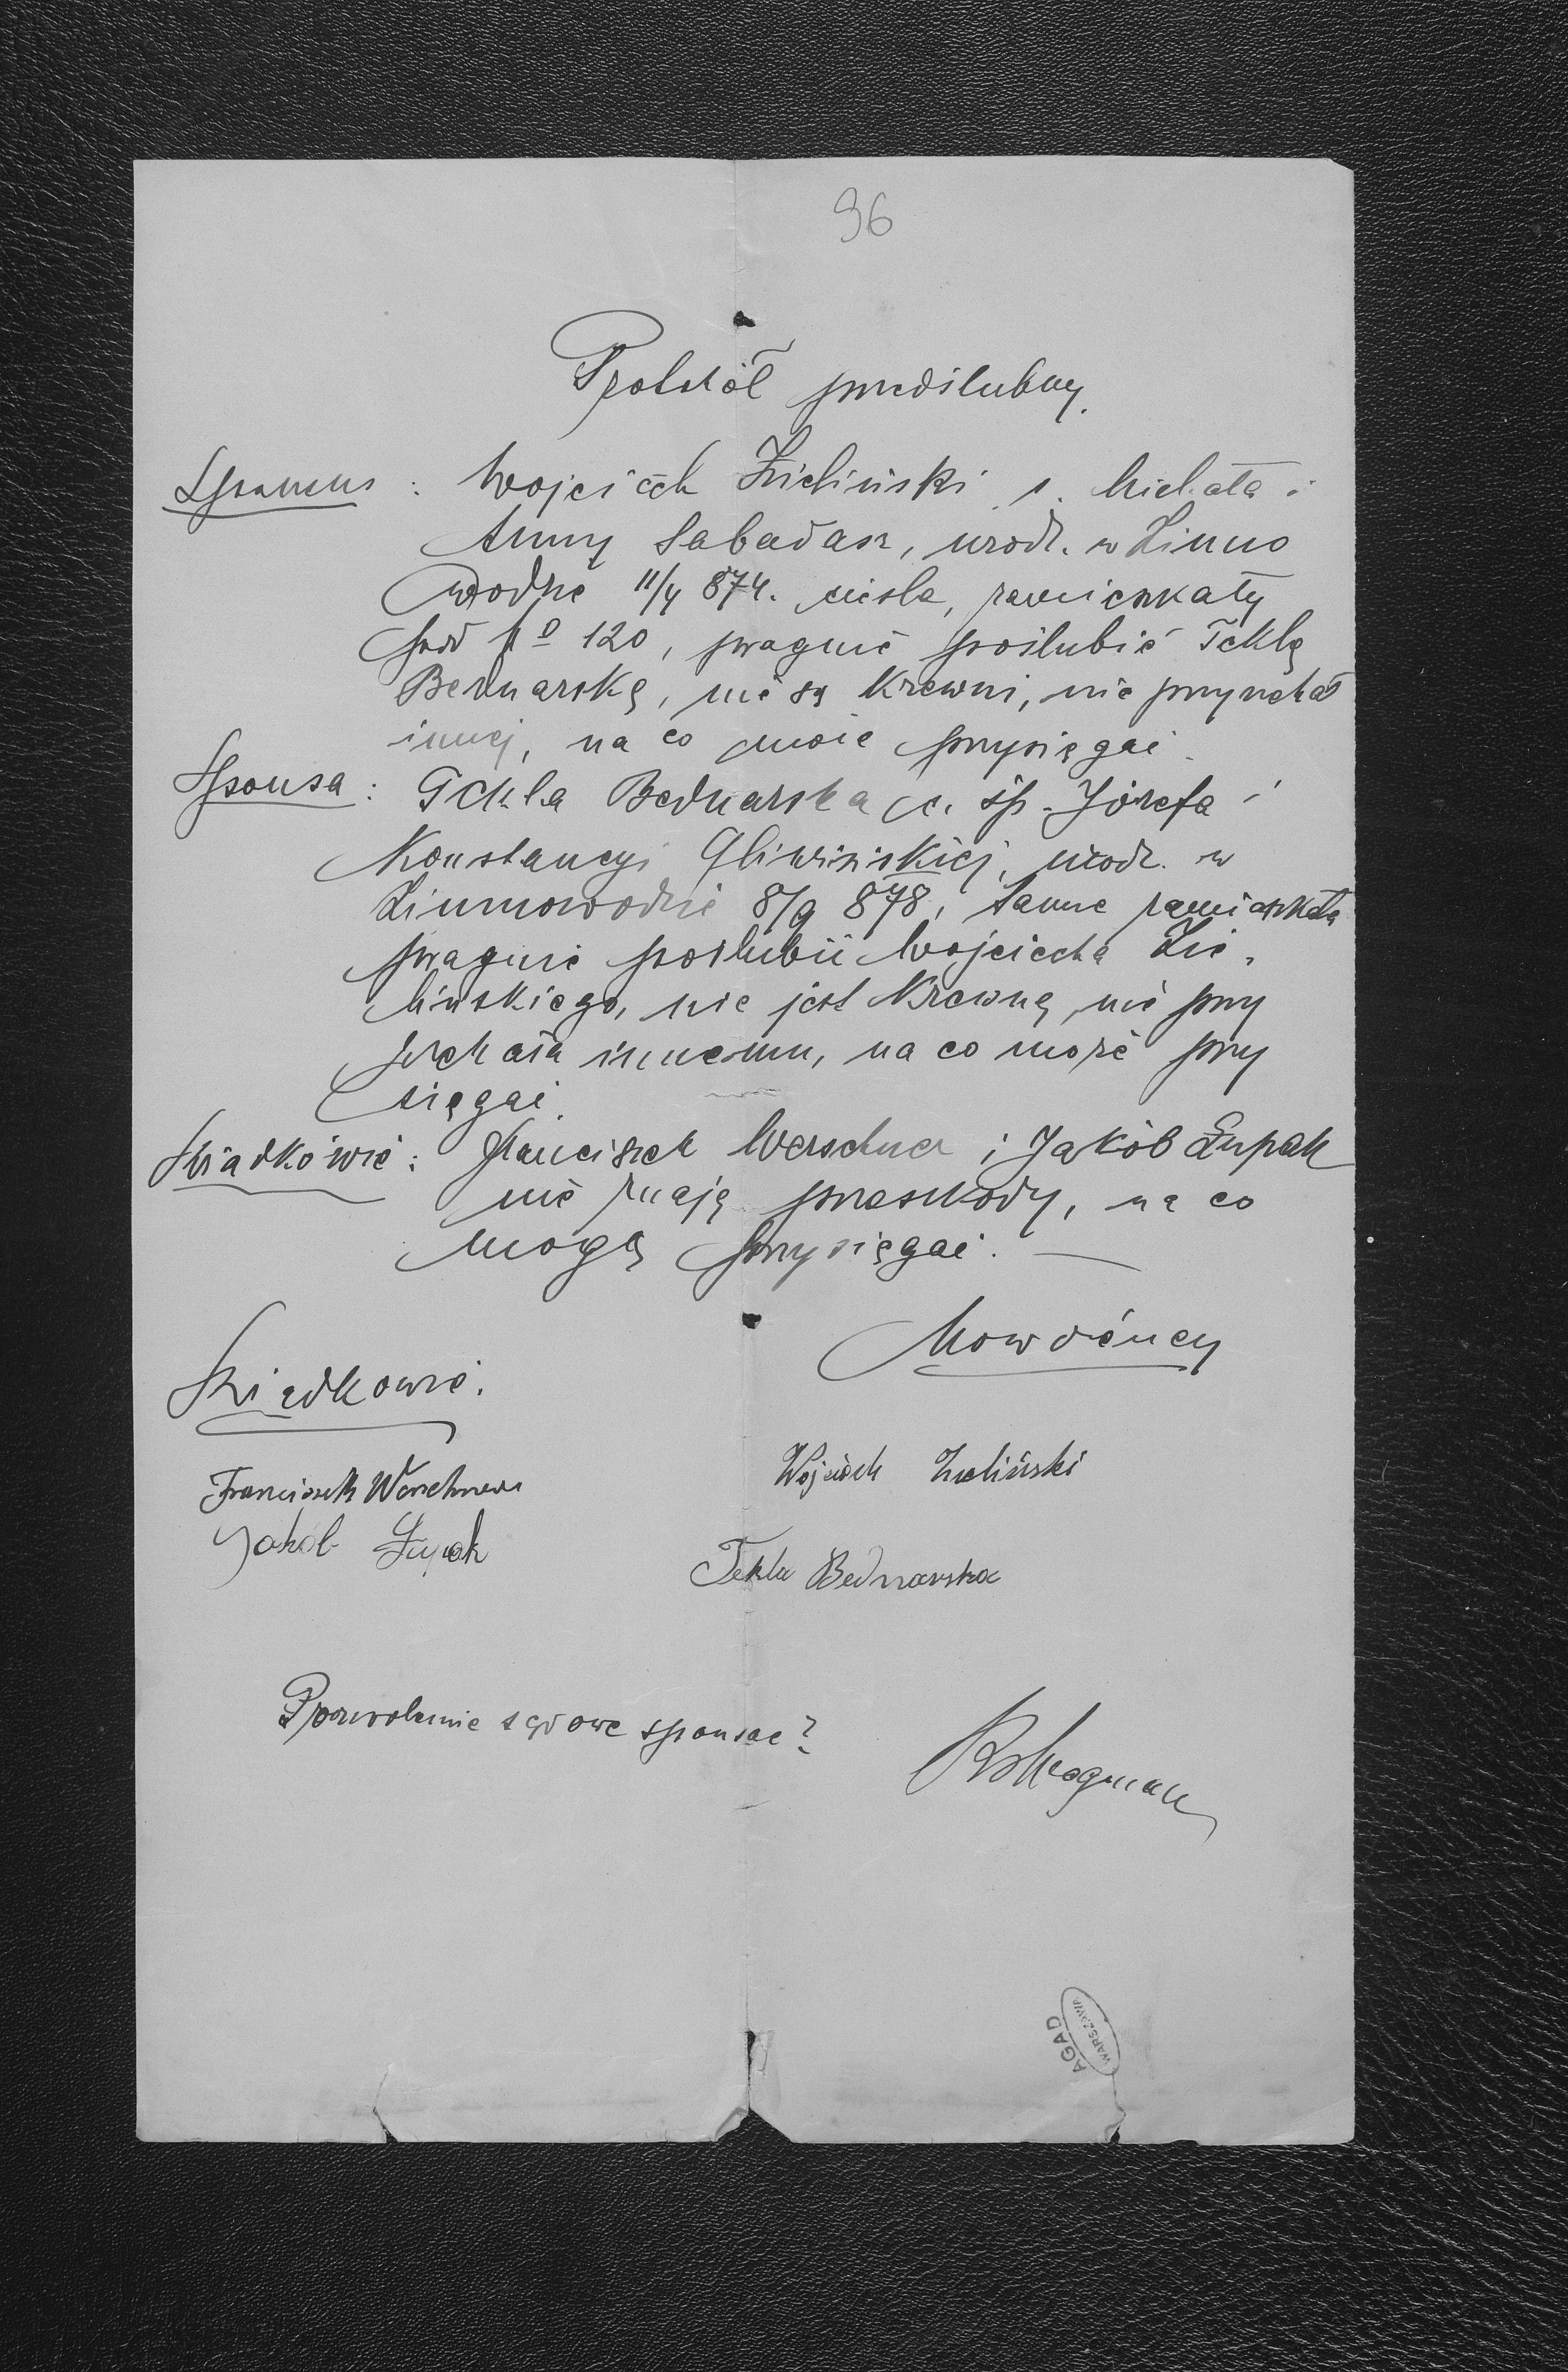 96
Protokół przedślubny.
Sponsus : Wojciech Zieliński s. Michała i
Anny Sabadasz, urodz. w Zimno
wodzie 11/4 874. cieśla, zamieszkały
pod No 120, pragnie poślubić Teklę
Bednarską, nie są krewni, nie przyrzekał
innej, na co może przysięgać.
Sponsa : Tekla Bednarska c. śp. Józefa i
Konstancyi Gliwińskiej, urodz. w
Zimnowodzie 8/9 878, tamże zamieszkała
pragnie poślubić Wojciecha Zie-
lińskiego, nie jest krewną, nie przy
rzekała innemu, na co może przy
sięgać.
Świadkowie : Franciszek Werschner i Jakób Łupak
nie znają przeszkody, na co
mogą przysięgać. —
Nowożeńcy
Świadkowie.
Wojciech Zieliński
Franciszek Werschner
Jakób Łupak
Tekla Bednarska
Pozwolenie sądowe sponsae?
AGAD
WARSZAWA